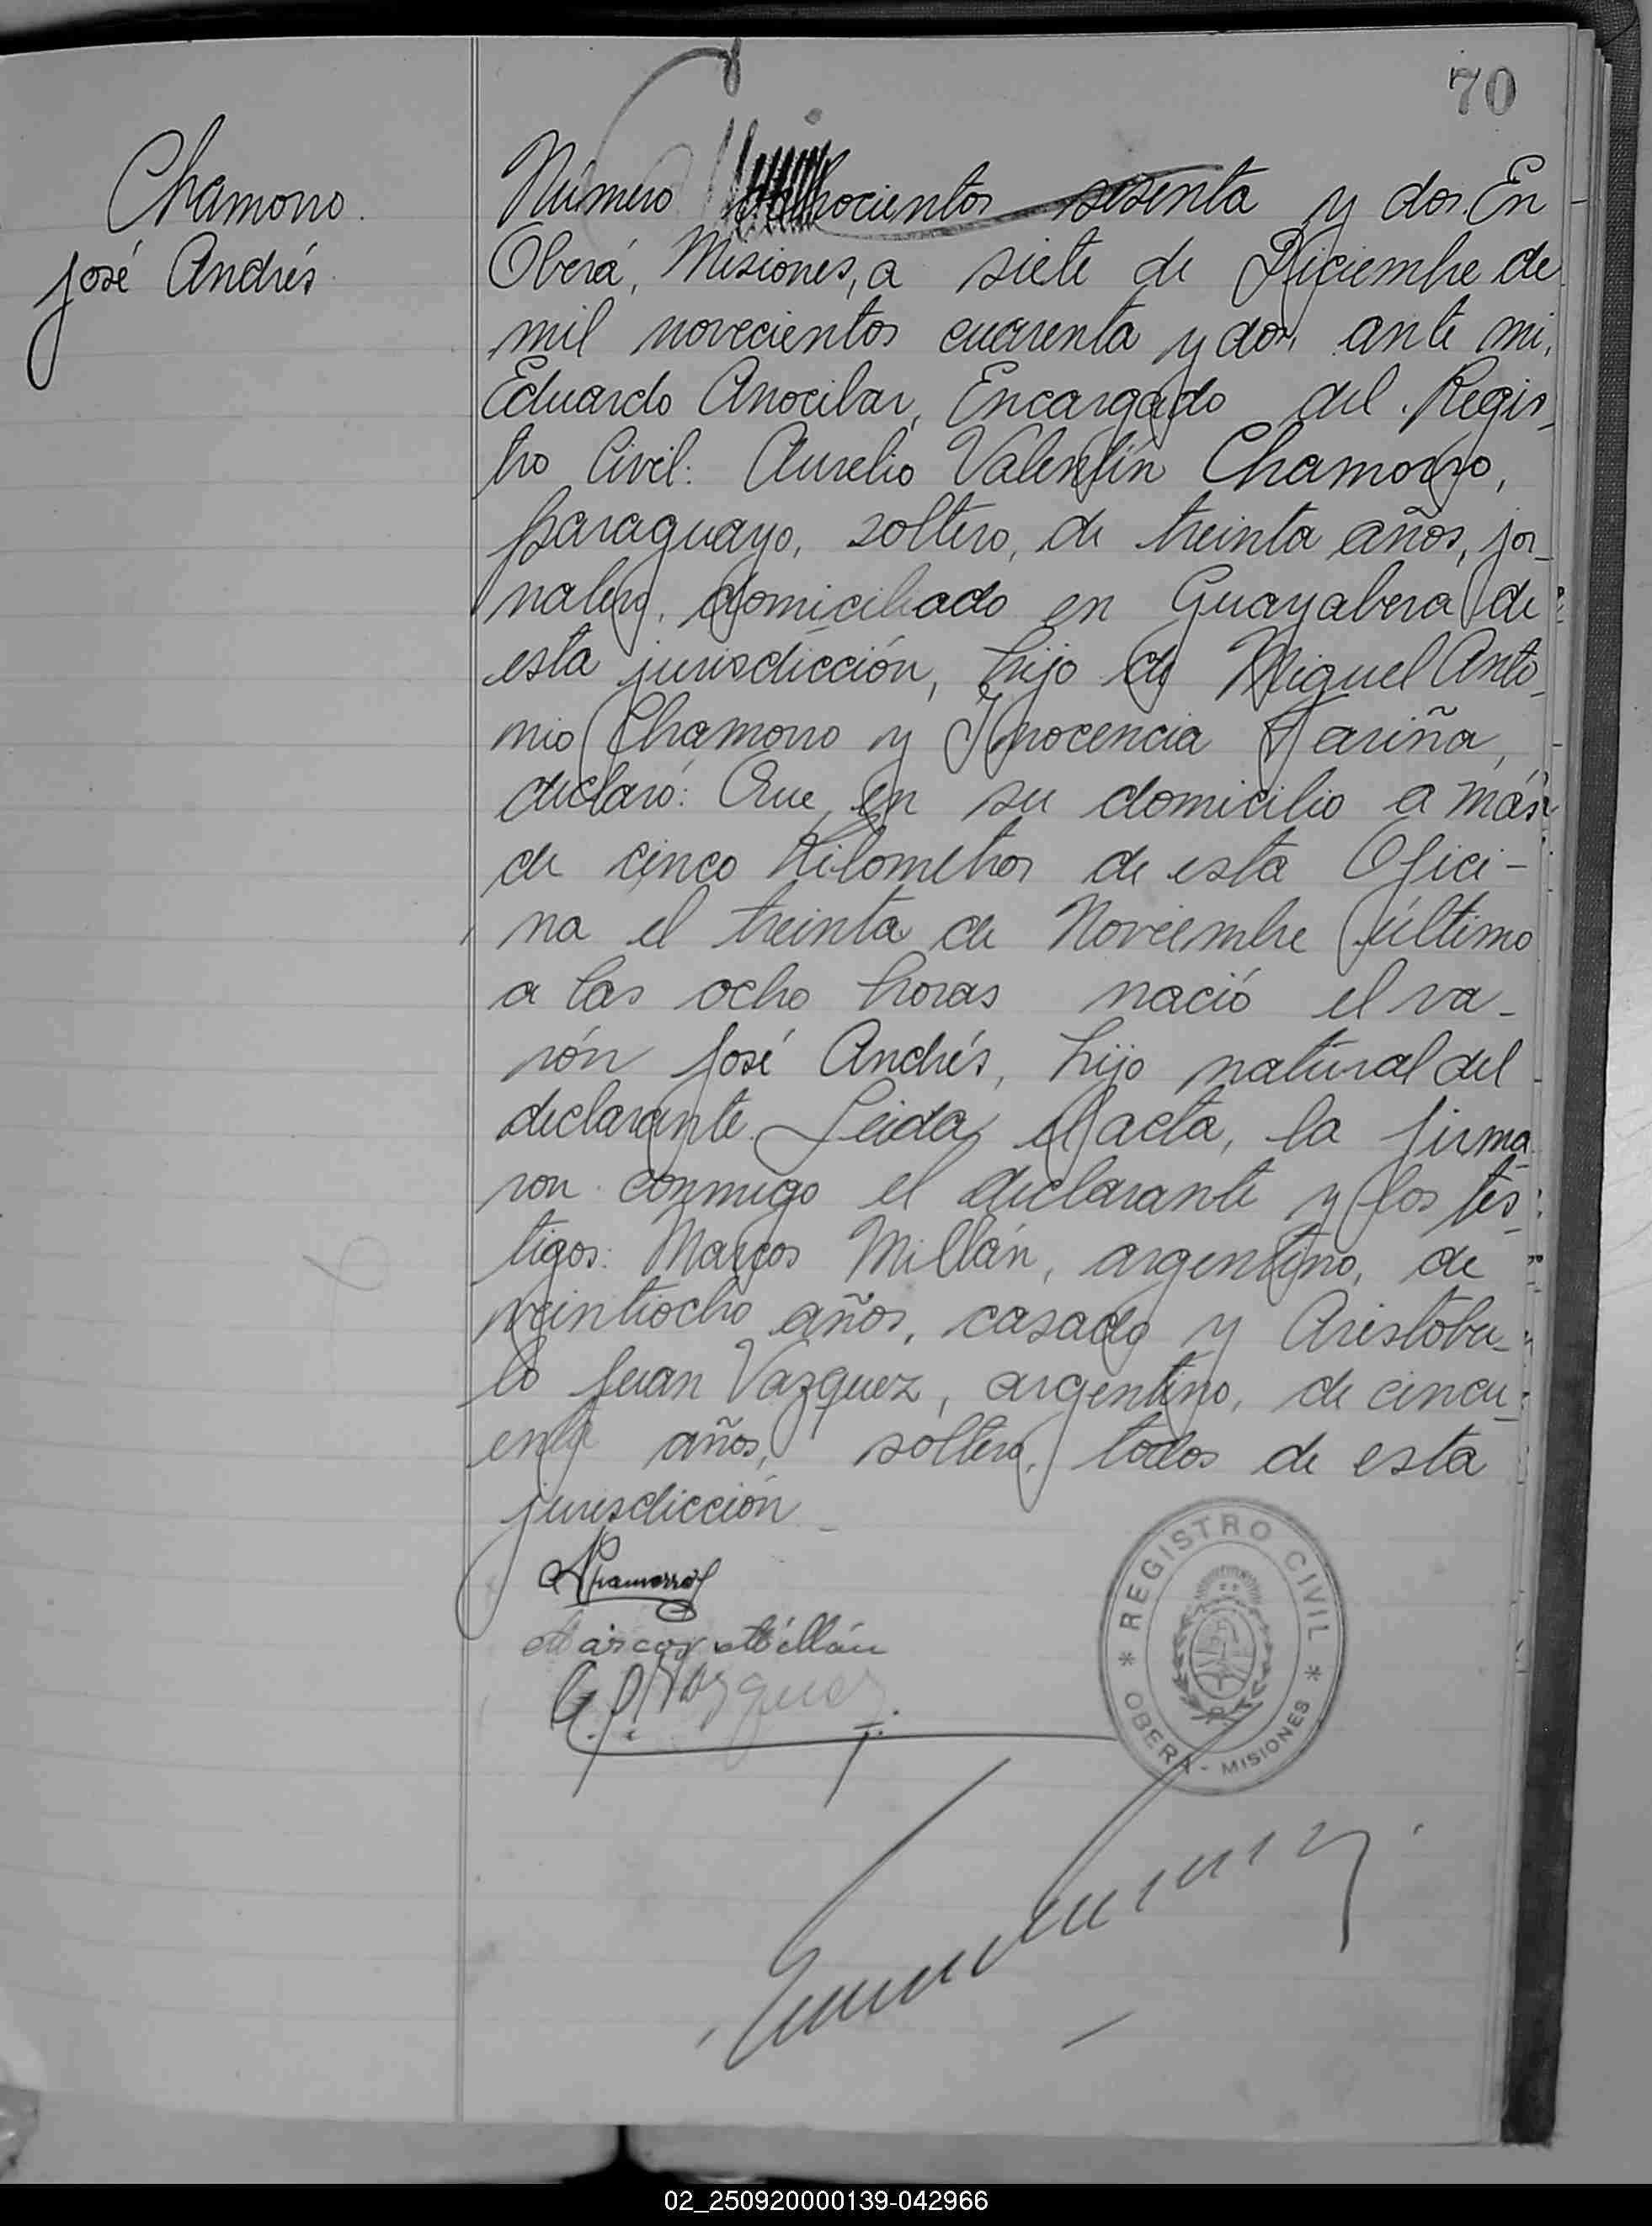 70
Chamorro.
José Andrés.
Número ochocientos sesenta y dos. En
Oberá, Misiones, a siete de Diciembre de
mil novecientos cuarenta y dos, ante mi,
Eduardo Anocibar, Encargado del Regis_
tro Civil: Aurelio Valentín Chamorro,
paraguayo, soltero, de treinta años, jor_
nalero, domiciliado en Guayabera de
esta jurisdicción, hijo de Miguel Anto_
nio Chamorro y Inocencia Fariña,
declaró: Que en su domicilio a más
de cinco Kilometros de esta Ofici-
na el treinta de Noviembre último
a las ocho horas nació el va_
rón José Andrés, hijo natural del
declarante. Leida el acta, la firma_
ron conmigo el declarante y los tes_
tigos: Marcos Millán, argentino, de
veintiocho años, casado y Aristobu_
lo Juan Vazquez, argentino, de cincu_
enta años, soltero, todos de esta
jurisdicción_
AChamorro
Marcos Millán
Vazquez
* REGISTRO CIVIL *
OBERÁ - MISIONES
02_250920000139-042966